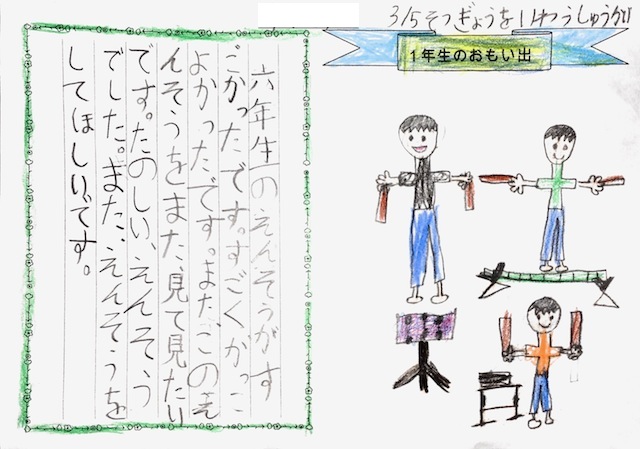 3/5そつぎょうをいわうしゅうかい
1年生のおもい出
六年生のえんそうがす
ごかったです。すごくかっこ
よかったです。また、このえ
んそうをまた、見て見たい
です。たのしい、えんそう
でした。また、えんそうを
してほしいです。